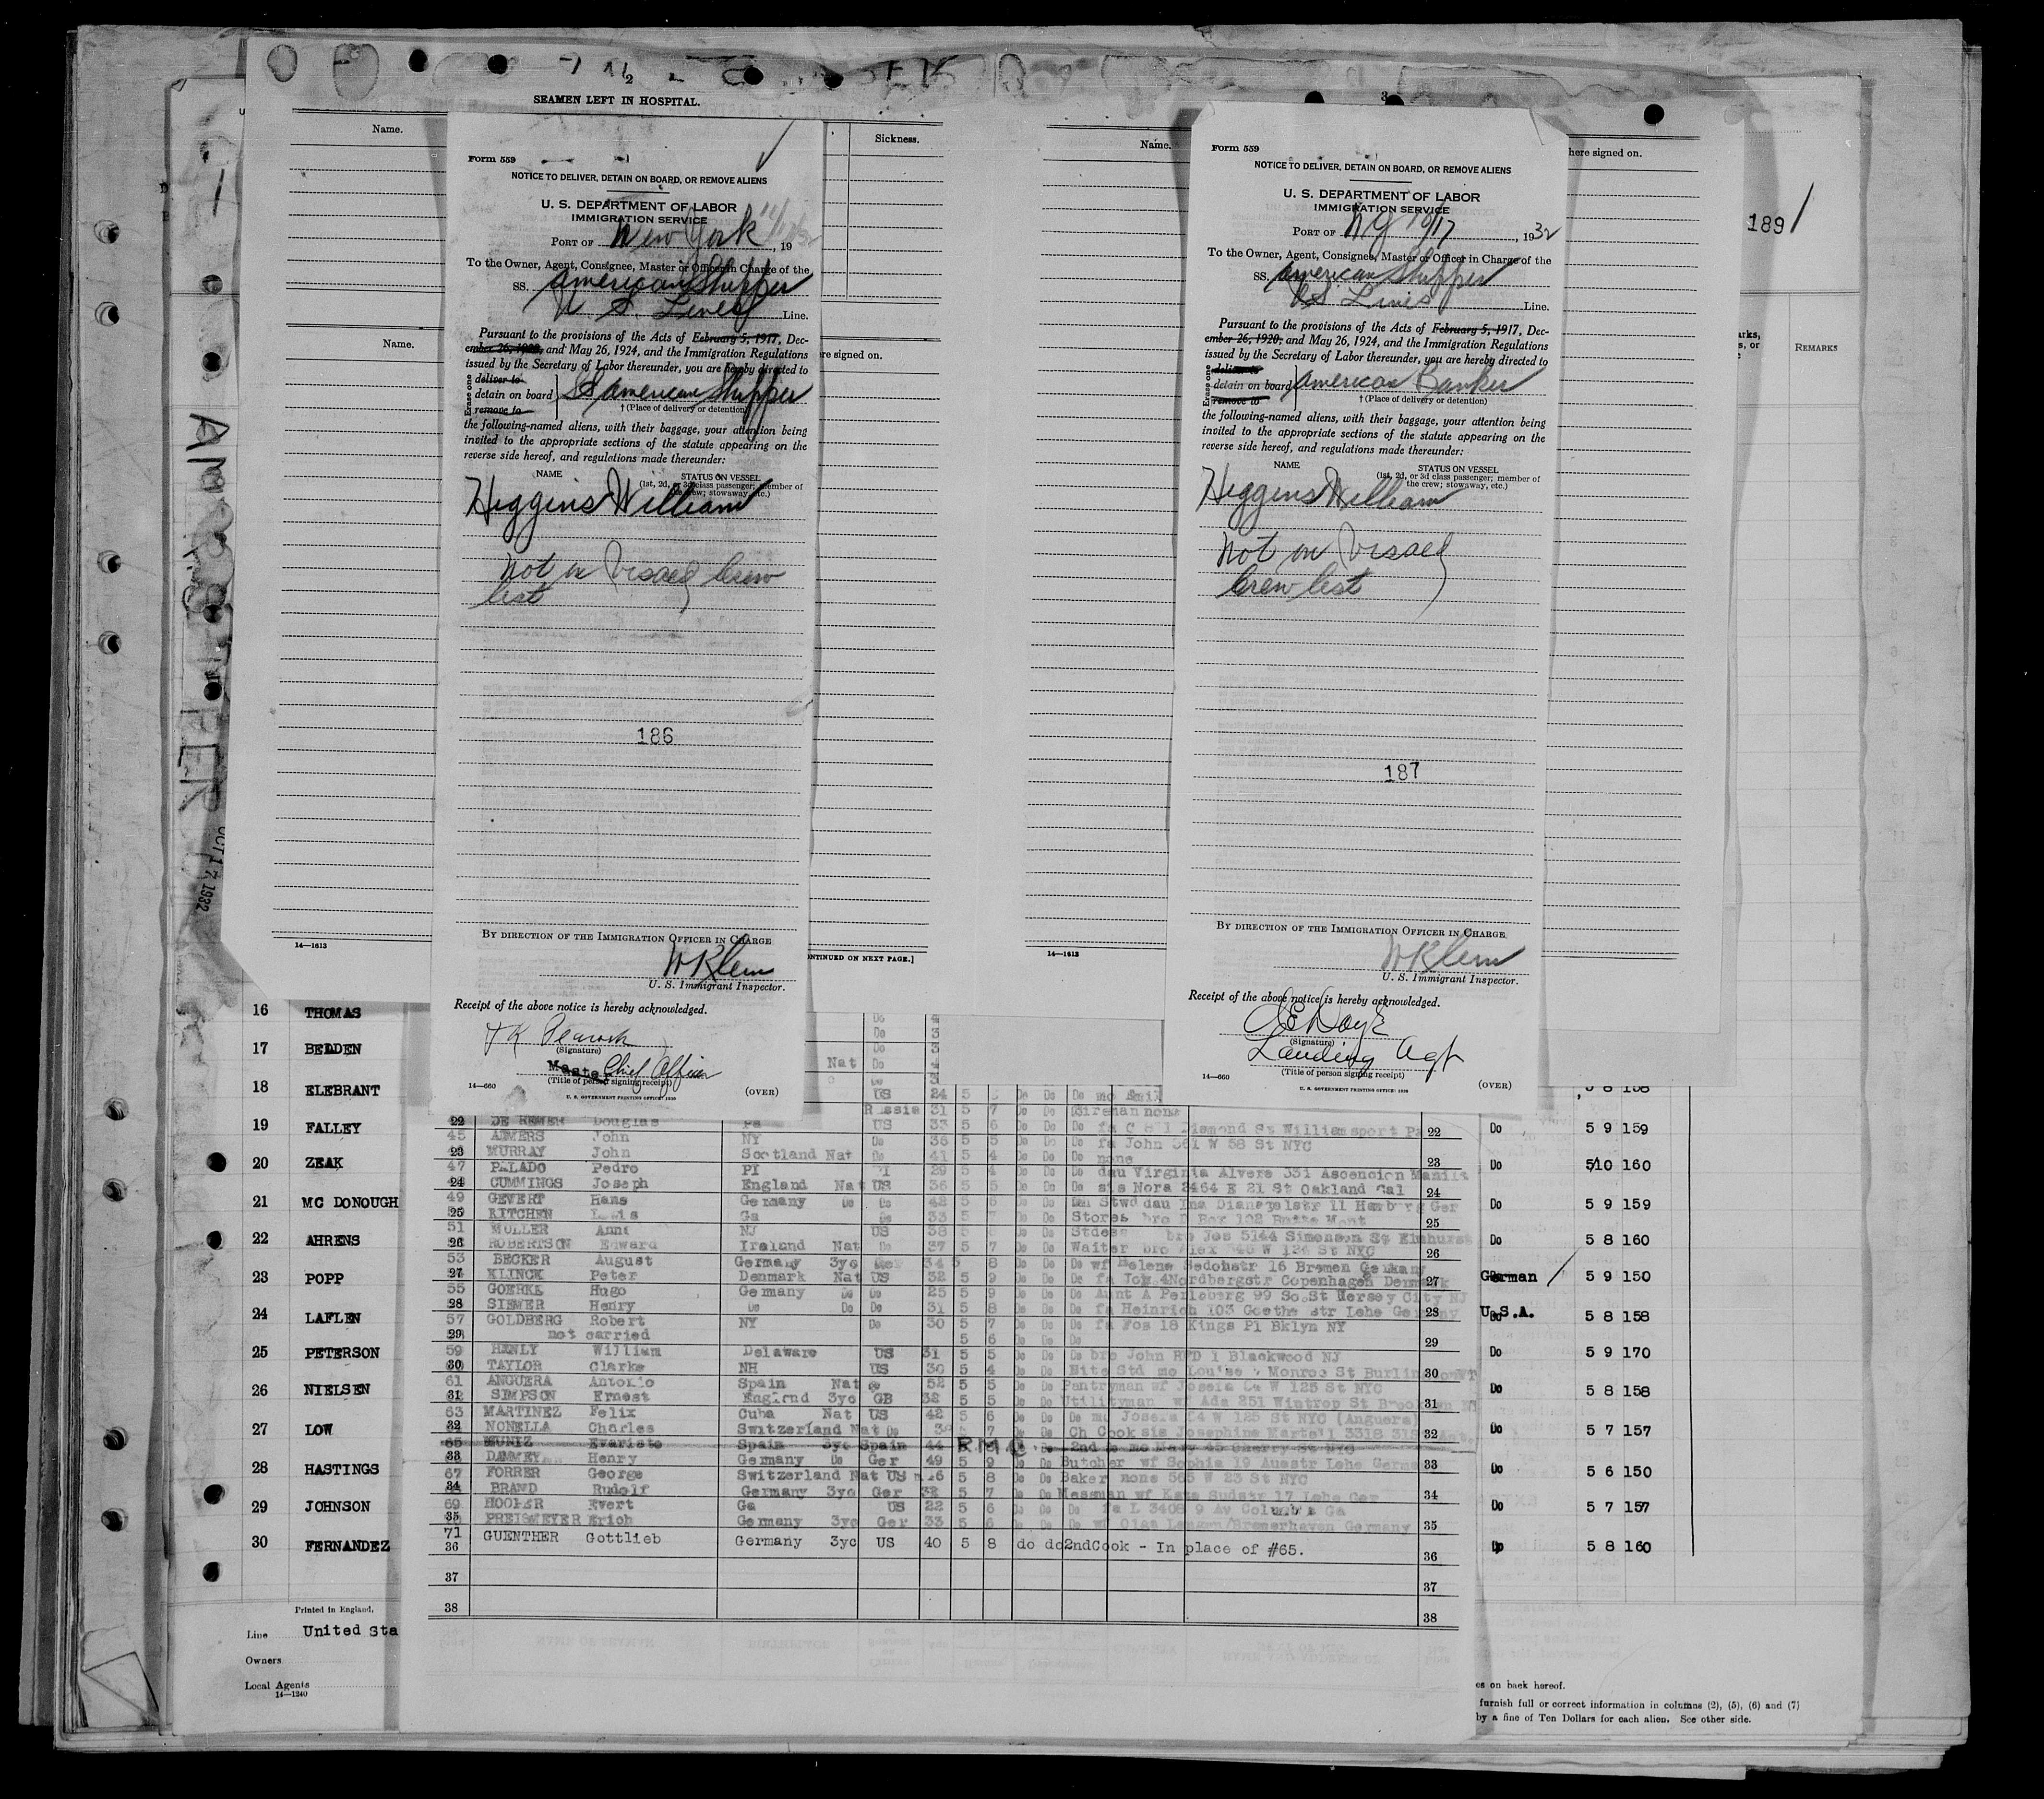 SEAMEN LEFT IN HOSPITAL.
Name.
Sickness.
Name.
re signed on.
14—1613
ONTINUED ON NEXT PAGE.]
Form 559
NOTICE TO DELIVER, DETAIN ON BOARD, OR REMOVE ALIENS
U. S. DEPARTMENT OF LABOR
IMMIGRATION SERVICE
PORT OF New York, 19
To the Owner, Agent, Consignee, Master or Officer in Charge of the
SS. American Shipper
U S. Lines Line.
Pursuant to the provisions of the Acts of February 5, 1917, Dec-
ember 26, 1920, and May 26, 1924, and the Immigration Regulations
issued by the Secretary of Labor thereunder, you are hereby directed to
Erase one
deliver to
detain on board SS American Shipper
remove to
† (Place of delivery or detention)
the following-named aliens, with their baggage, your attention being
invited to the appropriate sections of the statute appearing on the
reverse side hereof, and regulations made thereunder:
NAME STATUS ON VESSEL
(1st, 2d, or 3d class passenger; member of
the crew; stowaway, etc.)
Higgins William
Not on Visaed Crew
list
186
BY DIRECTION OF THE IMMIGRATION OFFICER IN CHARGE
W Klem
U. S. Immigrant Inspector.
Receipt of the above notice is hereby acknowledged.
(Signature)
Chief Officer
(Title of person signing receipt)
14—660
U. S. GOVERNMENT PRINTING OFFICE
(OVER)
3
Name.
here signed on.
14—1613
Form 559
NOTICE TO DELIVER, DETAIN ON BOARD, OR REMOVE ALIENS
U. S. DEPARTMENT OF LABOR
IMMIGRATION SERVICE
PORT OF NY 10/17, 1932
To the Owner, Agent, Consignee, Master or Officer in Charge of the
SS. American Shipper
US Lines Line.
Pursuant to the provisions of the Acts of February 5, 1917, Dec-
ember 26, 1920, and May 26, 1924, and the Immigration Regulations
issued by the Secretary of Labor thereunder, you are hereby directed to
Erase one
deliver to
detain on board American Banker
remove to
† (Place of delivery or detention)
the following-named aliens, with their baggage, your attention being
invited to the appropriate sections of the statute appearing on the
reverse side hereof, and regulations made thereunder:
NAME STATUS ON VESSEL
(1st, 2d, or 3d class passenger; member of
the crew; stowaway, etc.)
Higgins William
Not on Visaed
Crew list
187
BY DIRECTION OF THE IMMIGRATION OFFICER IN CHARGE
W Klem
U. S. Immigrant Inspector.
Receipt of the above notice is hereby acknowledged.
(Signature)
Landing Agt
(Title of person signing receipt)
14—660
U. S. GOVERNMENT PRINTING OFFICE
(OVER)
189
REMARKS
OCT 17 1932
16 THOMAS
17 BELDEN
18 ELEBRANT
19 FALLEY
20 ZEAK
21 MC DONOUGH
22 AHRENS
23 POPP
24 LAFLEN
25 PETERSON
26 NIELSEN
27 LOW
28 HASTINGS
29 JOHNSON
30 FERNANDEZ
Printed in England.
Line United Sta
Owners
Local Agents
14—1240
US 24 5
Russia 31 5 7 Do Do Fireman none
22 DE REMER Douglas Pa US 33 5 6 Do Do Do 22
45 AHMERS John NY Do 36 5 5 Do Do Do fa John 361 W 58 St NYC
23 MURRAY John Scotland Nat Do 41 5 4 Do Do Do none 23
47 PALADO Pedro PI PI 29 5 4 Do Do Do dau Virginia Alvere 331 Ascencion Manila
24 CUMMINGS Joseph England Nat US 36 5 5 Do Do Do sis Nora 2464 E 21 St Oakland Cal 24
49 GEVERT Hans Germany Do Do 42 5 6 Do Do
25 RITCHEN Louis Ga Do 33 5 7 Do Do Stores bro P Box 102 Butte Mont 25
51 MOLLER Anna NJ US 38 5 Do Do Stdess bro Jos 5144 Simonson St Elmhurst
26 ROBERTSON Edward Ireland Nat Do 37 5 7 Do Do Waiter bro Alex W 124 St NYC 26
53 BECKER August Germany 3yc Ger 34 5 8 Do Do Do wf Helene Sedohstr 16 Bremen Germany
27 KLINCK Peter Denmark Nat US 32 5 9 Do Do Do fa Nordbergstr Copenhagen Denmark 27
55 GOERKE Hugo Germany Do Do 25 5 9 Do Do Do Aunt A Perleberg 99 So St Jersey City NJ
28 SIEMER Henry Do Do Do 31 5 8 Do Do Do fa Heinrich 103 Goethe str Lehe Germany 28
57 GOLDBERG Robert NY Do 30 5 7 Do Do Do fa Fos 18 Kings Pl Bklyn NY
29 not carried 5 6 Do Do Do 29
59 HANLY William Delaware US 31 5 5 Do Do Do bro John RFD 1 Blackwood NJ
30 TAYLOR Clarke NH US 30 5 4 Do Do Monroe St 30
61 ANGUERA Antonio Spain Nat Do 52 5 5 Do Do Pantryman wf Josefa 54 W 125 St NYC
31 SIMPSON Ernest England 3yc GB 38 5 5 Do Do Utilityman wf Ada 251 Winthrop St Brooklyn NY 31
63 MARTINEZ Felix Cuba Nat US 42 5 6 Do Do Do Josefa 54 W 125 St NYC (Anguera)
32 NONELLA Charles Switzerland Nat Do 5 7 Do Do Ch Cook sis Josephine 3318 32
65 MUNIZ Evaristo Spain 3yc Spain 44 Do 2nd do mo Mary 45 Cherry St NYC
33 DAMMEY Henry Germany Do Ger 49 5 9 Do Do Butcher wf Sophia 19 Auestr Lehe Germa 33
67 FORRER George Switzerland Nat US 26 5 8 Do Do Baker none 565 W 23 St NYC
34 BRAND Rudolf Germany 3yc Ger 32 5 7 Do Do Messman wf Kate Sudstr 17 Lehe Ger 34
69 HOOPER Evert Ga US 22 5 6 Do Do Do fa L 3408 9 Av Columbus Ga
35 PREISMEYER Erich Germany 3yc Ger 33 5 6 Do Do Do wf Olga Bremerhaven Germany 35
71 GUENTHER Gottlieb Germany 3yc US 40 5 8 do do 2ndCook - In place of #65.
36 36
37 37
38 38
5 8 158
Do 5 9 159
Do 5 10 160
Do 5 9 159
Do 5 8 160
German 5 9 150
U.S.A. 5 8 158
Do 5 9 170
Do 5 8 158
Do 5 7 157
Do 5 6 150
Do 5 7 157
Do 5 8 160
es on back hereof.
furnish full or correct information in columns (2), (5), (6) and (7)
by a fine of Ten Dollars for each alien. See other side.